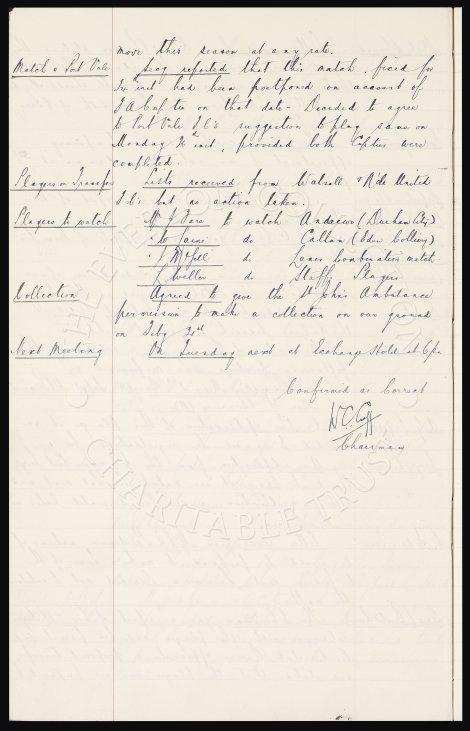 move this season at any rate.
Match v Port Vale Secy reported that this match, fixed for
inst had been postponed on account of
F A Cup tie on that date - Decided to agree
to Port Vale F.C's suggestion to play same on
Monday inst, provided both Cup ties were
completed.
Players on Transfer Lists received from Walsall & Hyde United
F.C's but no action taken.
Players to watch Mr J to watch Andrews (Durham City)
" do Callan (Eden Colliery)
" J do Lancs Combination match
do Staffs Players
Collection Agreed to give the St Johns Ambulance
permission to make a collection on our ground
on Feby 3rd
Next Meeting On Tuesday next at Exchange Hotel at 6 pm
Confirmed as Correct
W.C. Cuff
Chairman
THE EVERTON
CHARITABLE TRUST